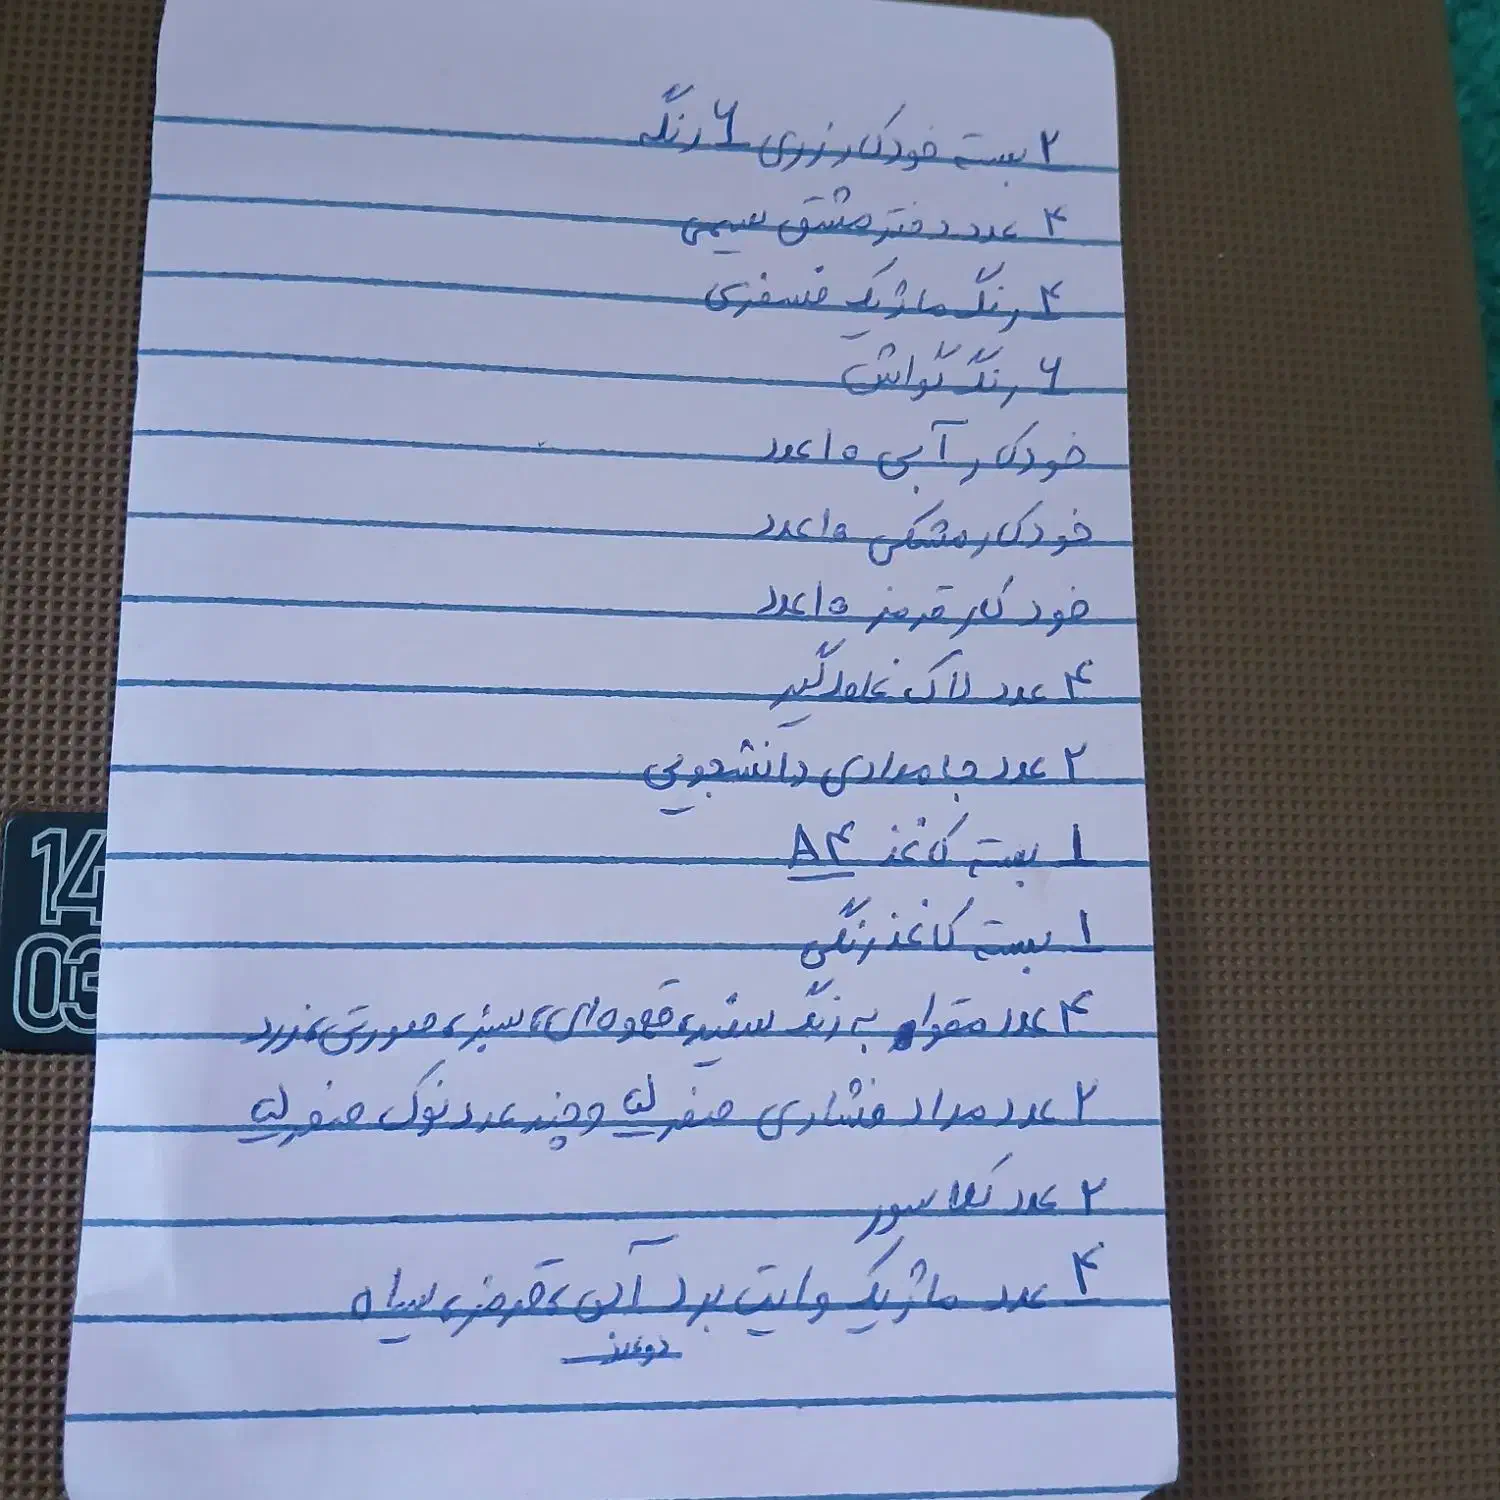 ۲ بسته خودکار نزری ۶ رنگه
۴ عدد دفتر مشق سیمی
۴ رنگ ماژیک فسفری
۶ رنگ گواش
خودکار آبی ۱۵ عدد
خودکار مشکی ۱۵ عدد
خودکار قرمز ۱۵ عدد
۴ عدد لاک غلطگیر
۲ عدد جامدادی دانشجویی
۱ بسته کاغذ A۴
۱ بسته کاغذ رنگی
۴ عدد مقوا به رنگ سفید، قهوه‌ای، سبز، صورتی، زرد
۲ عدد مداد فشاری صفر ۵ و چند عدد نوک صفر ۵
۲ عدد کلاسور
۴ عدد ماژیک وایت برد آبی، قرمز، سیاه
دو عدد
14
03